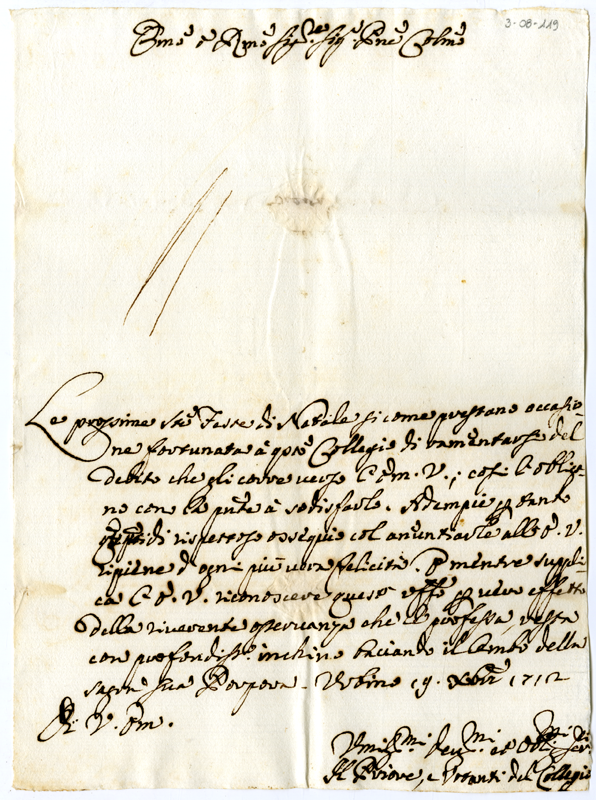 3-08-119
Emō e Rmō Sigre Sigr Pne Colmō
Le prossime Ste Feste di Natale si come prestano occasio=
ne fortunata à qsto Collegio di ramentarsi del
debito che gli corre verso l'Em. V., così l'obliga=
no con la pnte à sodisfarlo. Adempie per tanto
di rispettoso ossequio col anuntiarle all'E. V.
ripiene d'ogni più vera felicità. E mentre suppli=
ca l'E. V. riconoscere questo uffo per vero effetto
della riverente osservanza che le professa, resta
con profondissmo inchino baciando il lembo della
sagra sua Porpora. Urbino 19. Xbre 1712
Di V. Em.
Umilmi Devmi et Oblmi Seri
Il Priore, e Votanti del Collegio